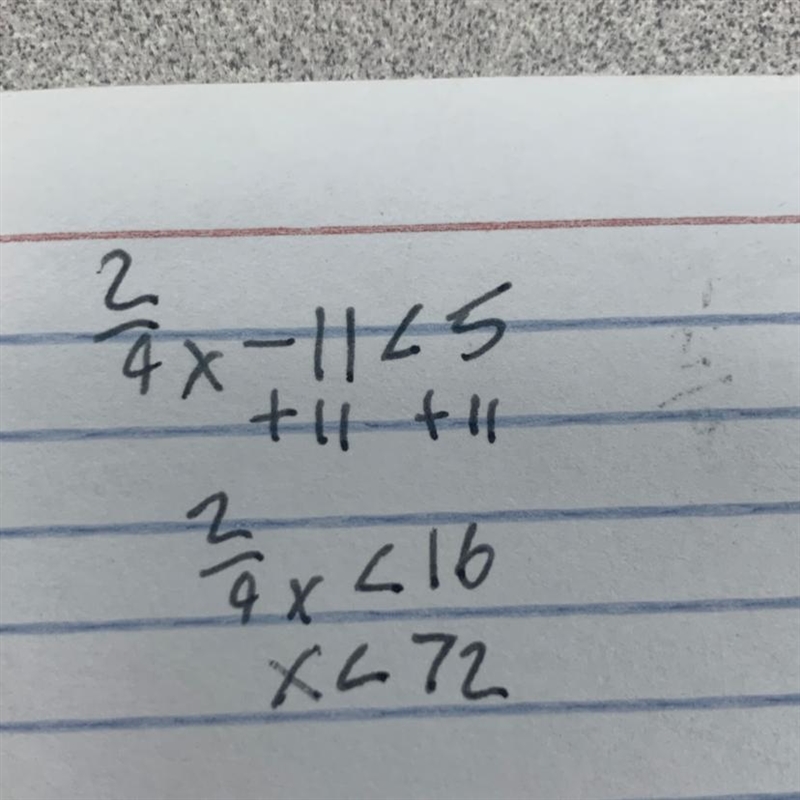 2/4 x - 11 < 5
+11 +11
2/4 x < 16
x < 72